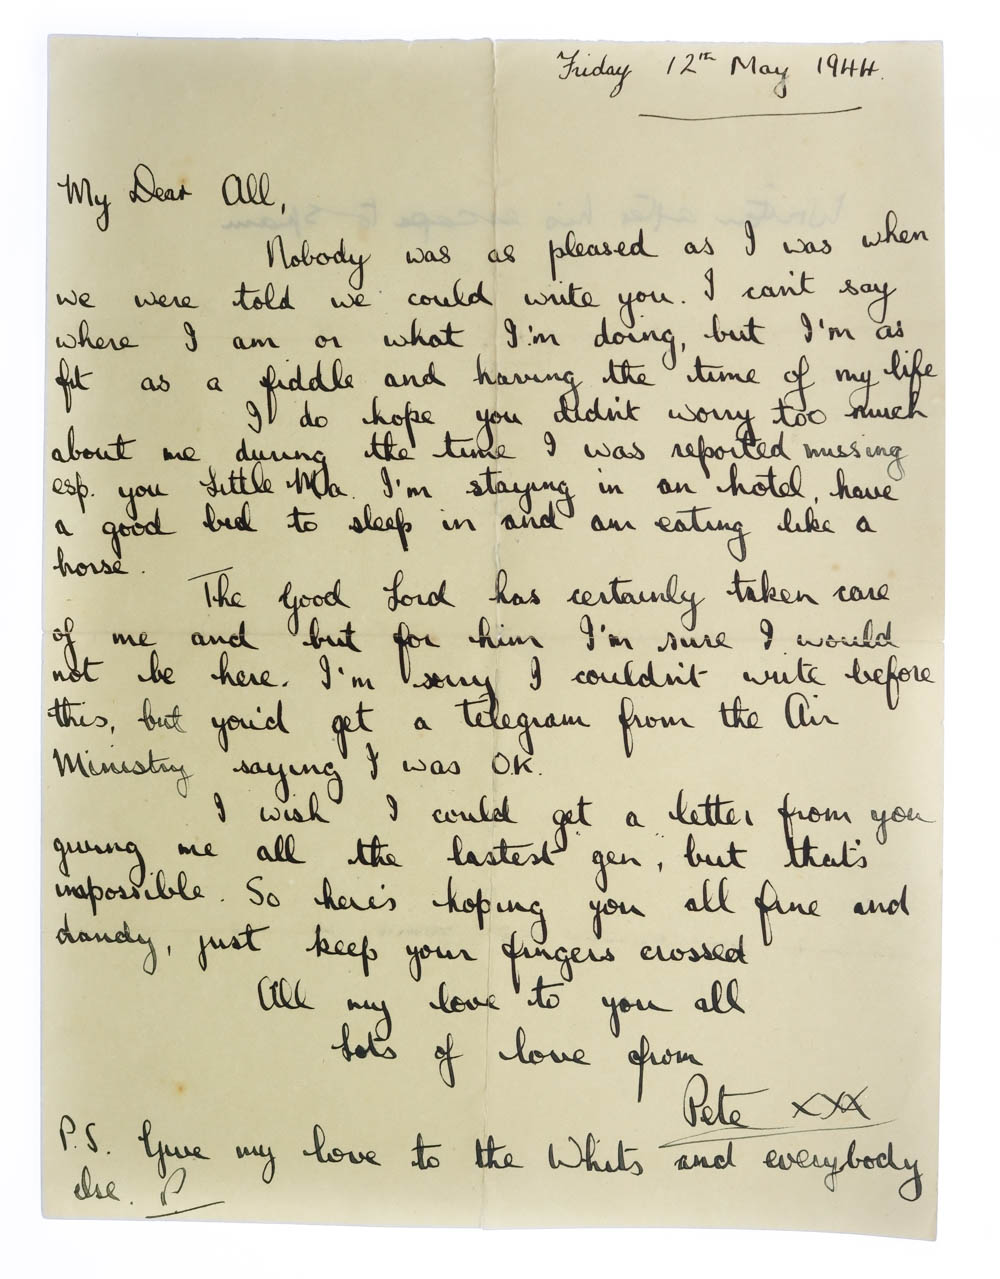 Friday 12th May 1944.
My Dear All,
Nobody was as pleased as I was when
we were told we could write you. I can't say
where I am or what I'm doing, but I'm as
fit as a fiddle and having the time of my life
I do hope you didn't worry too much
about me during the time I was reported missing
esp. you Little Ma. I'm staying in an hotel, have
a good bed to sleep in and am eating like a
horse.
The Good Lord has certainly taken care
of me and but for him I'm sure I would
not be here. I'm sorry I couldn't write before
this, but you'd get a telegram from the Air
Ministry saying I was O.K.
I wish I could get a letter from you
giving me all the lastest "gen", but that's
impossible. So here's hoping you all fine and
dandy, just keep your fingers crossed
All my love to you all
Lots of love from
Pete xxx
P.S. Give my love to the Whits and everybody
else. P.
Written after his escape to Spain